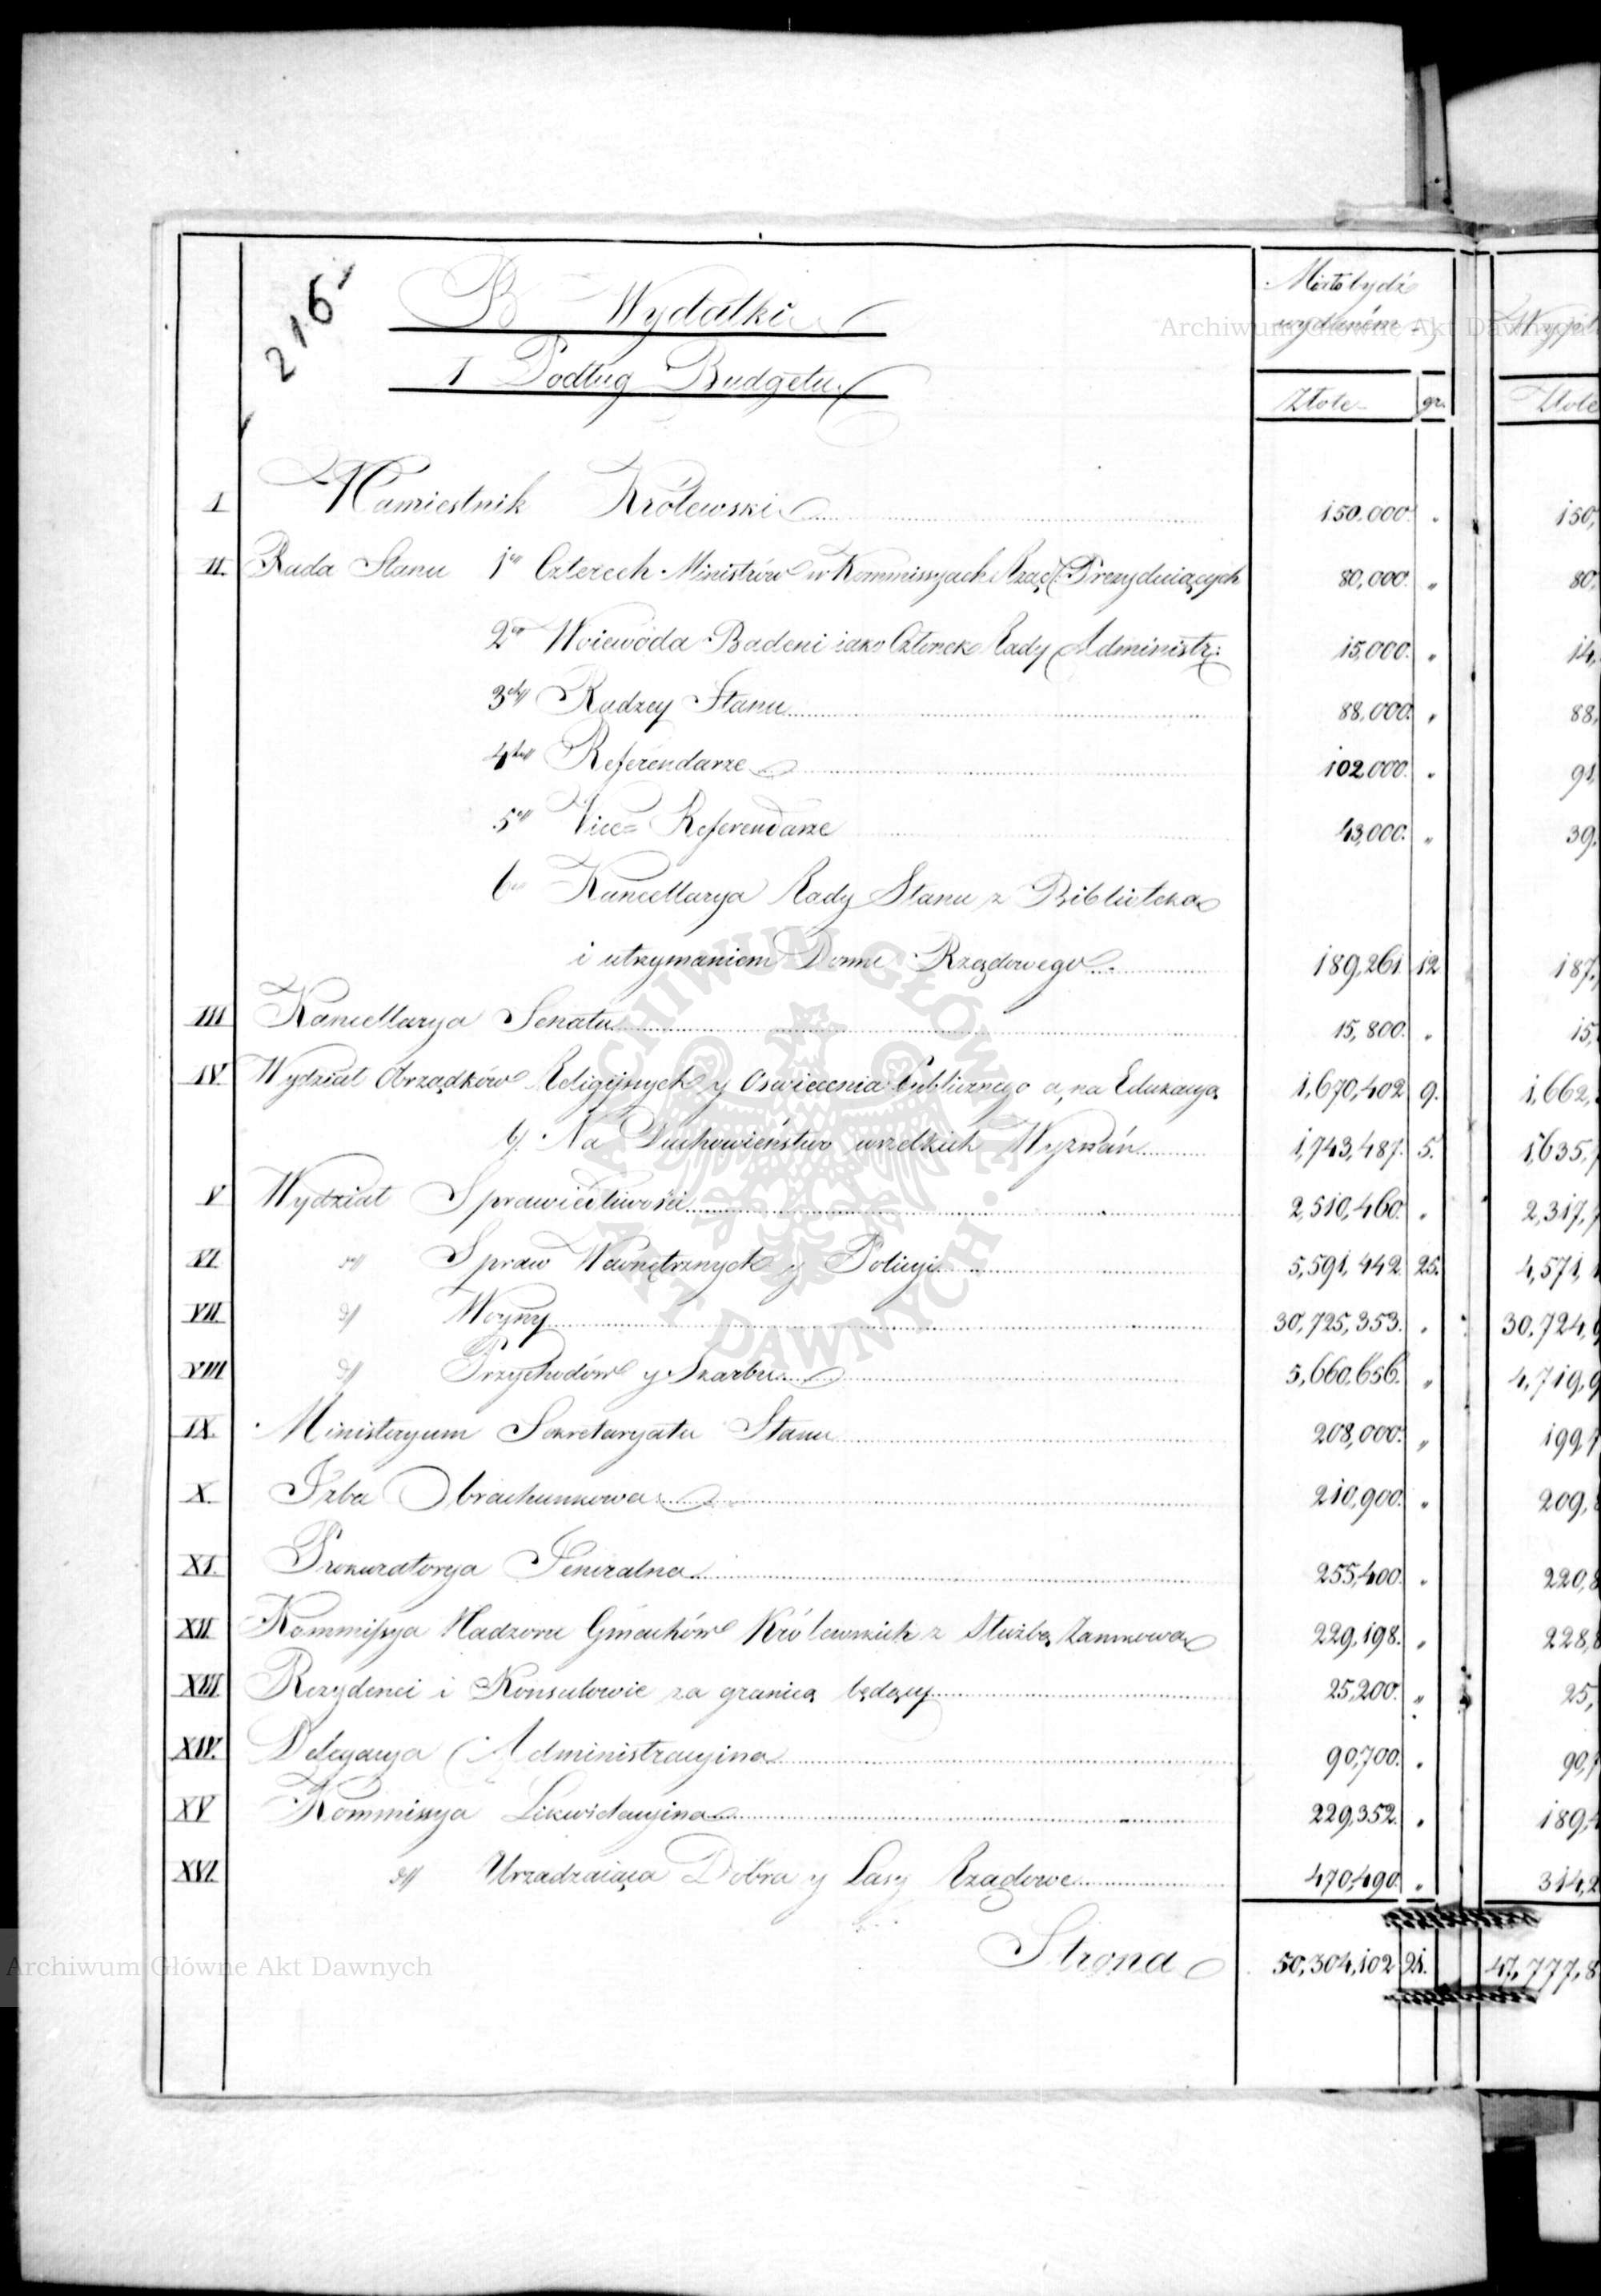 216
B Wydatki
I Podług Budgetu
Miało bydź
wydaném
Złote gr.
Złote
I Namiestnik Królewski 150.000. „ 150,
II. Rada Stanu 1o Czterech Ministrów w Kommissyach Rząd: Prezyduiących 80,000. „ 80,
2o Woiewoda Badeni iako Członek Rady Administr: 15,000. „ 14,
3o Radzcy Stanu 88,000. „ 88,
4o Referendarze 102,000. „ 91,
5o Vice= Referendarze 43,000. „ 39,
6o Kancellarya Rady Stanu z Biblioteką
i utrzymaniem Domu Rządowego 189,261. 12 187,
III Kancellarya Senatu 15,800. „ 15,
IV. Wydział Obrządków Religijnych y Oswiecenia Publicznego a, na Edukacyą 1,670,402 9. 1,662,
b, Na Duchowieństwo wszelkich Wyznań 1,743,487. 5. 1,635,
V Wydział Sprawiedliwości 2,510,460. „ 2,317,7
VI. d° Spraw Wewnętrznych y Policyi 5,591,442 25. 4,571,1
VII. d° Woyny 30,725,353. „ 30,724,9
VIII d° Przychodów y Skarbu 5,660,656. „ 4,719,9
IX. Ministeryum Sekretaryatu Stanu 208,000. „ 199,7
X. Izba Obrachunkowa 210,900. „ 209,8
XI. Prokuratorya Jeneralna 255,400. „ 220,8
XII Kommissya Nadzoru Gmachów Królewskich z Służbą Zamkową 229,198. „ 228,8
XIII Rezydenci i Konsulowie za granicą będący 25,200. „ 25,
XIV. Delegacya Administracyina 90,700. „ 90,7
XV Kommissya Likwidacyina 229,352. „ 189,4
XVI. d° Urządzaiąca Dobra y Lasy Rządowe 470,490 „ 314,2
Strona 50,304,102 21. 47,777,8
Archiwum Główne Akt Dawnych
Archiwum Główne Akt Dawnych
ARCHIWUM GŁÓWNE AKT DAWNYCH